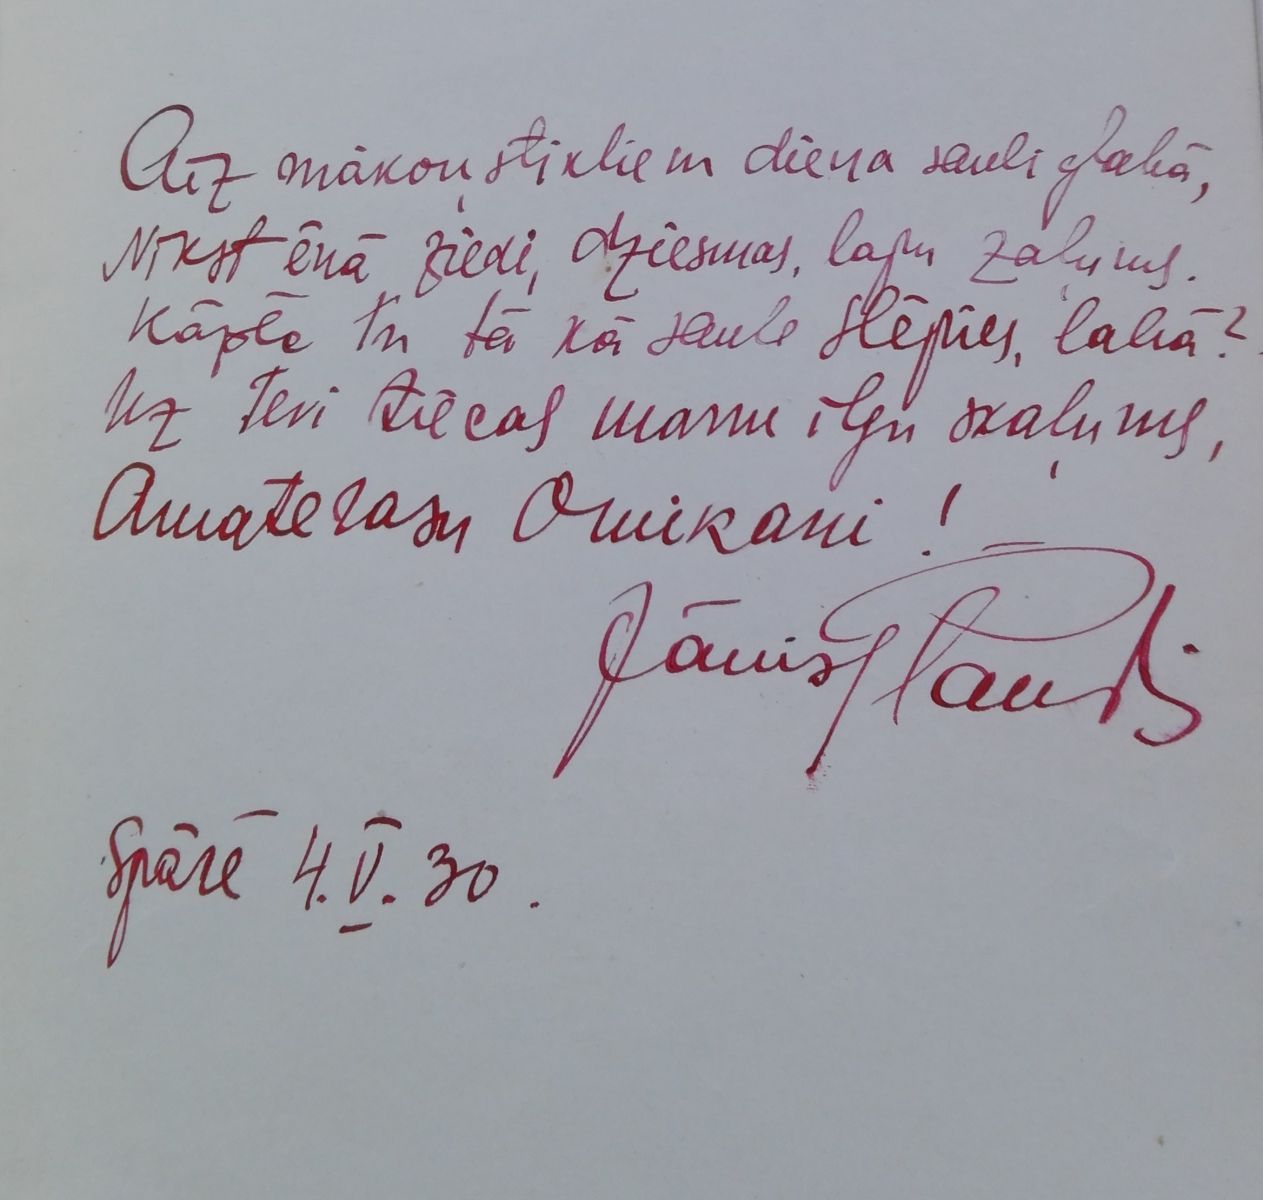 Aiz mākoņstikliem diena sauli glabā,
Nīkst ēnā ziedi, dziesmas, lapu zaļums.
Kāpēc Tu tā kā saule slēpies, labā?
Uz Tevi tiecas manu ilgu skaļums,
Amaterasu Omikami!
Jānis Plaudis
Spārē 4.V.30.